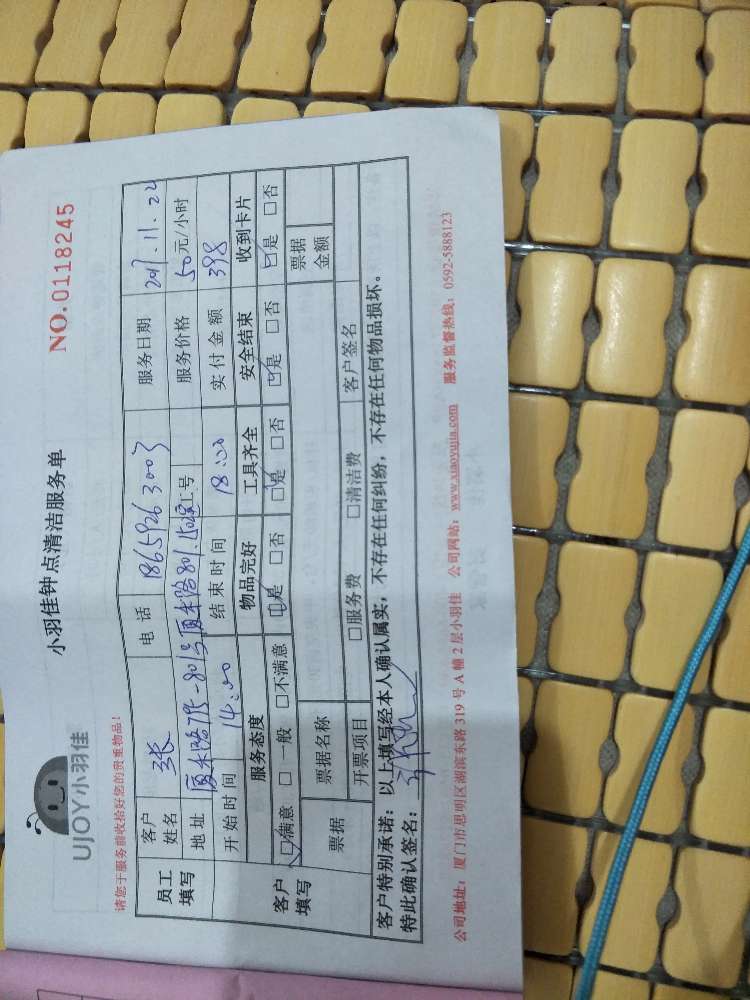 UJOY小羽佳
小羽佳钟点清洁服务单
NO.0118245
请您于服务前收拾好您的贵重物品!
员工填写
客户姓名 张 电话 18659263003 服务日期 2017.11.22
地址 厦禾路795-801号厦禾路801 号 服务价格 50元/小时
开始时间 14:00 结束时间 18:00 实付金额 398
客户填写
服务态度 物品完好 工具齐全 安全结束 收到卡片
☑满意 □一般 □不满意 ☑是 □否 ☑是 □否 ☑是 □否 ☑是 □否
票据 票据名称 票据金额
开票项目 □服务费 □清洁费 客户签名
客户特别承诺:以上填写经本人确认属实,不存在任何纠纷,不存在任何物品损坏。
特此确认签名:
公司地址:厦门市思明区湖滨东路319号A幢2层小羽佳 公司网站:www.xiaoyujia.com 服务监督热线:0592-5888123